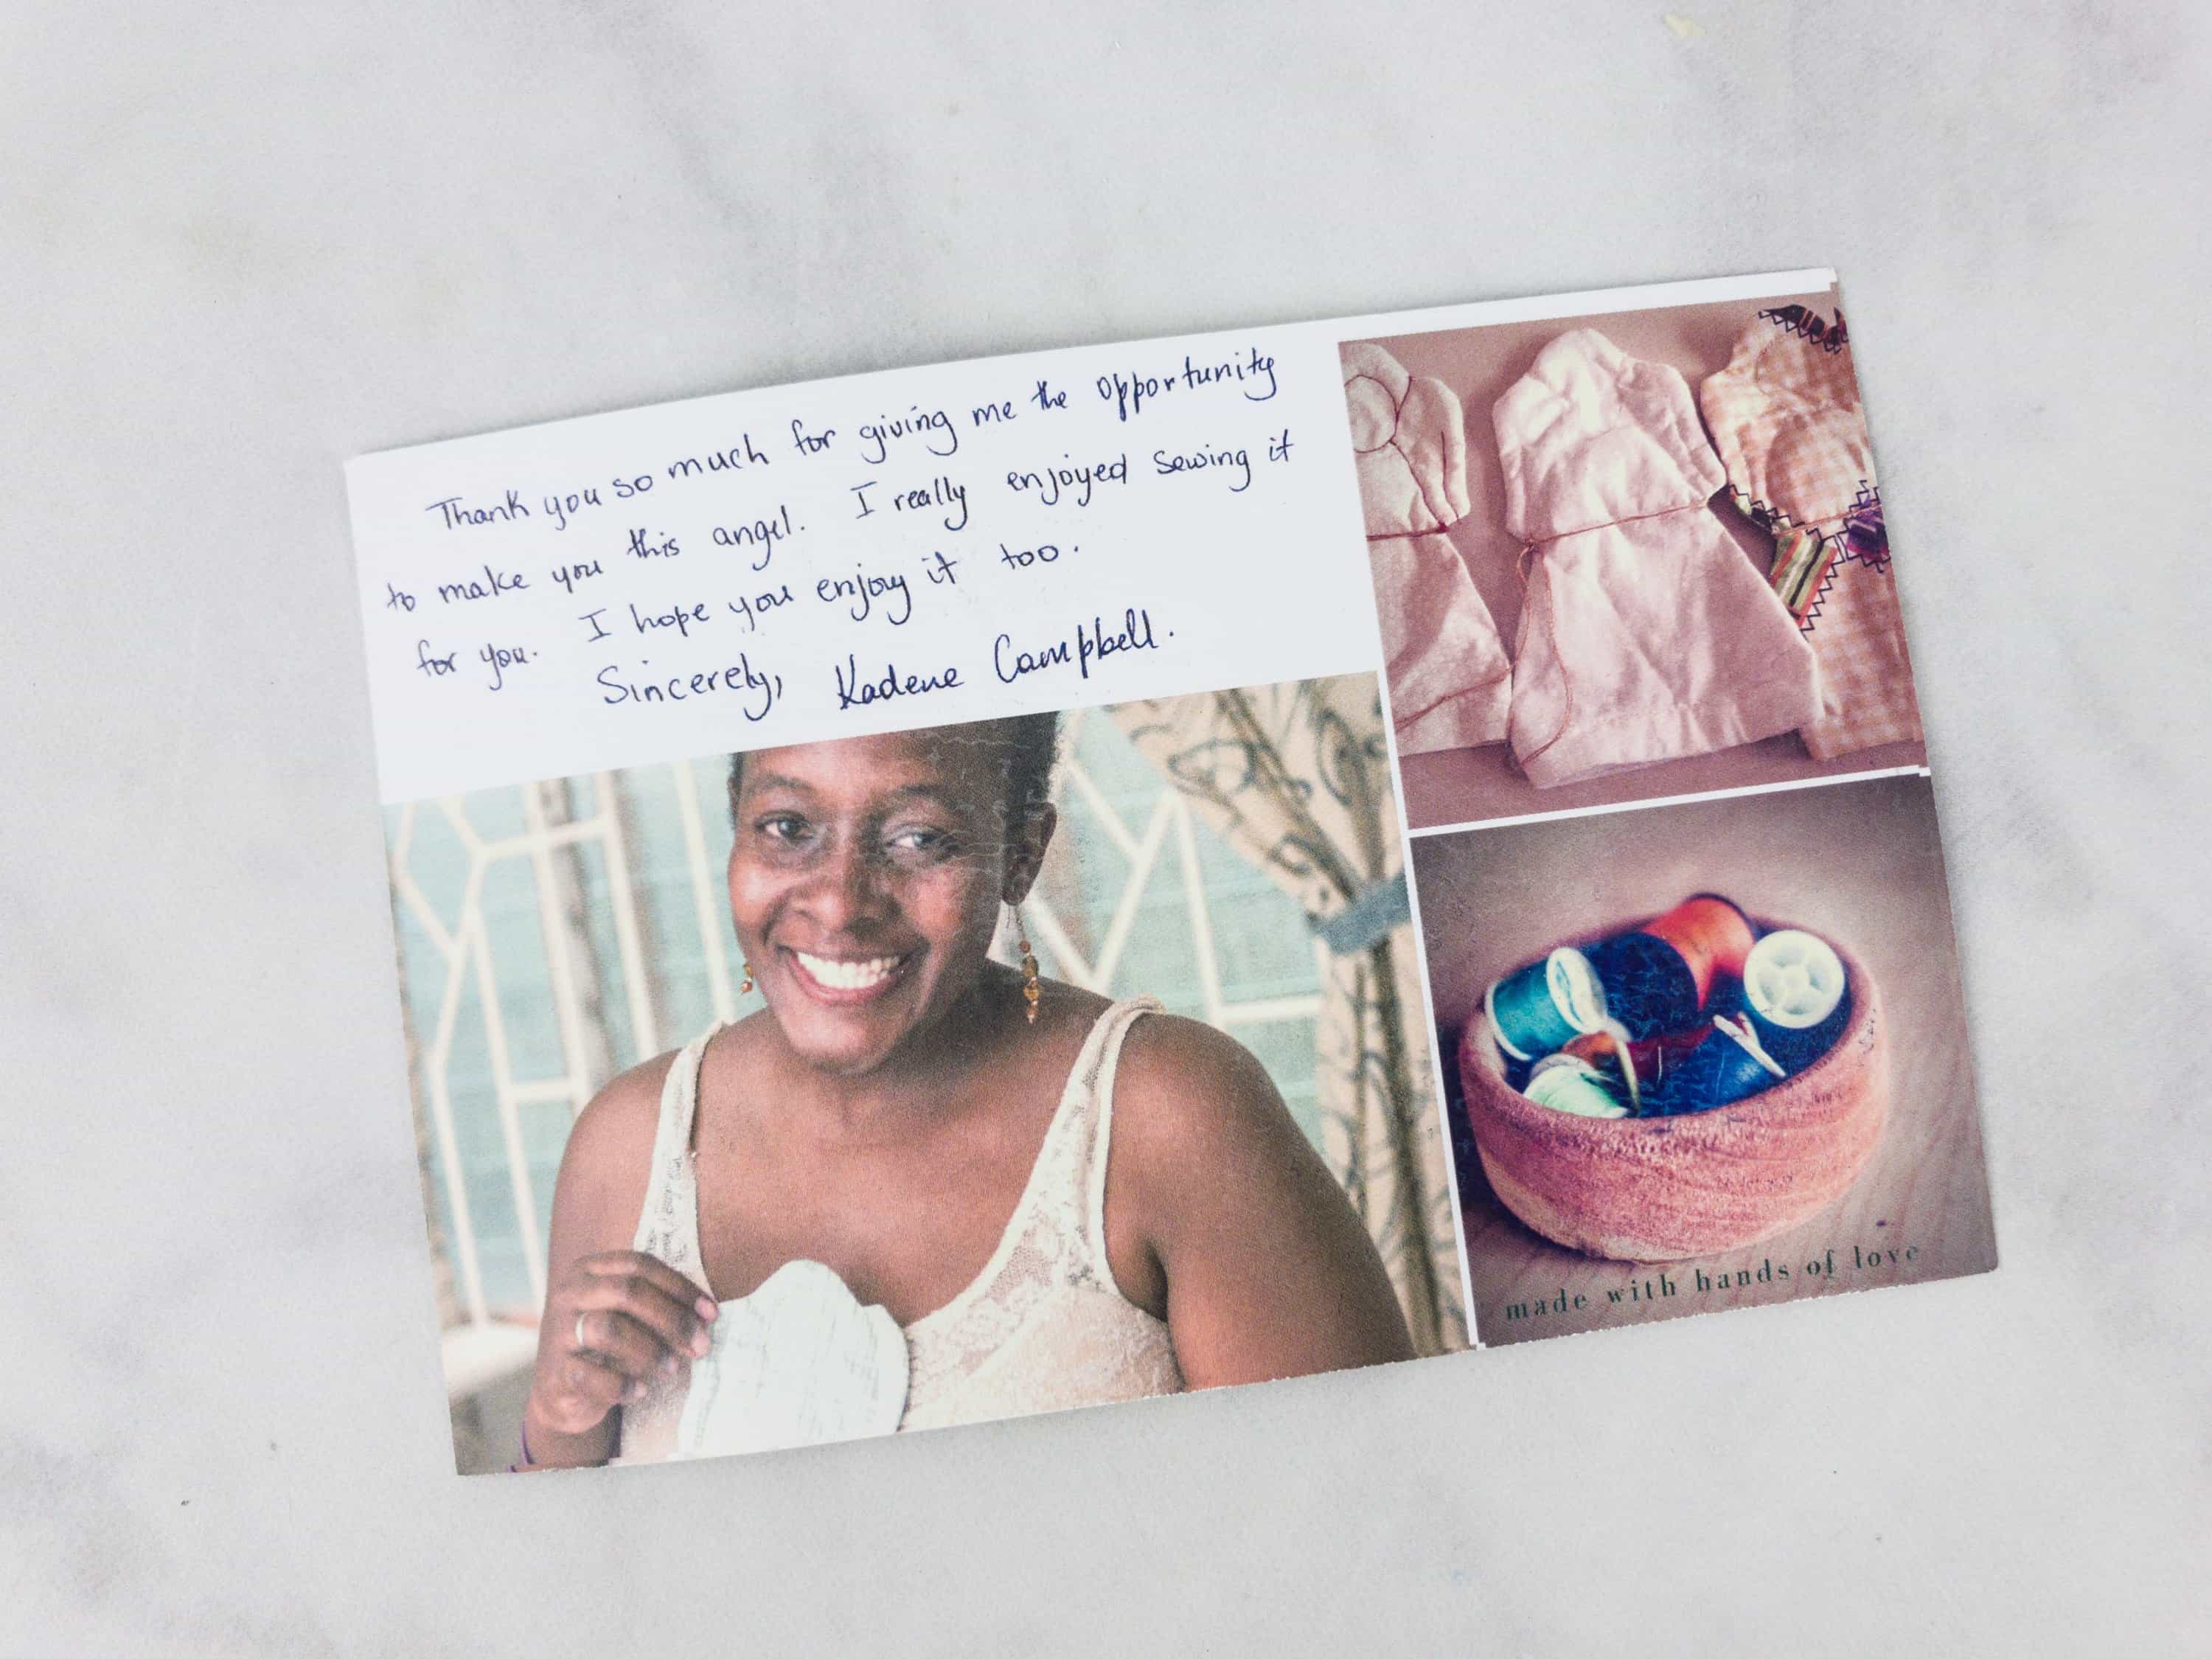 Thank you so much for giving me the opportunity
to make you this angel. I really enjoyed sewing it
for you. I hope you enjoy it too.
Sincerely, Kadene Campbell.
made with hands of love